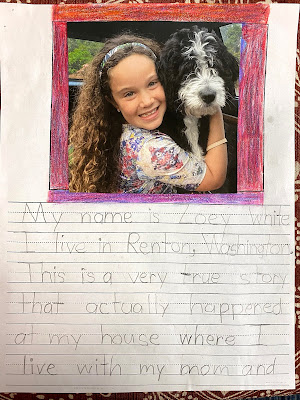 My name is Zoey White
I live in Renton, Washington.
This is a very true story
that actually happened
at my house where I
live with my mom and